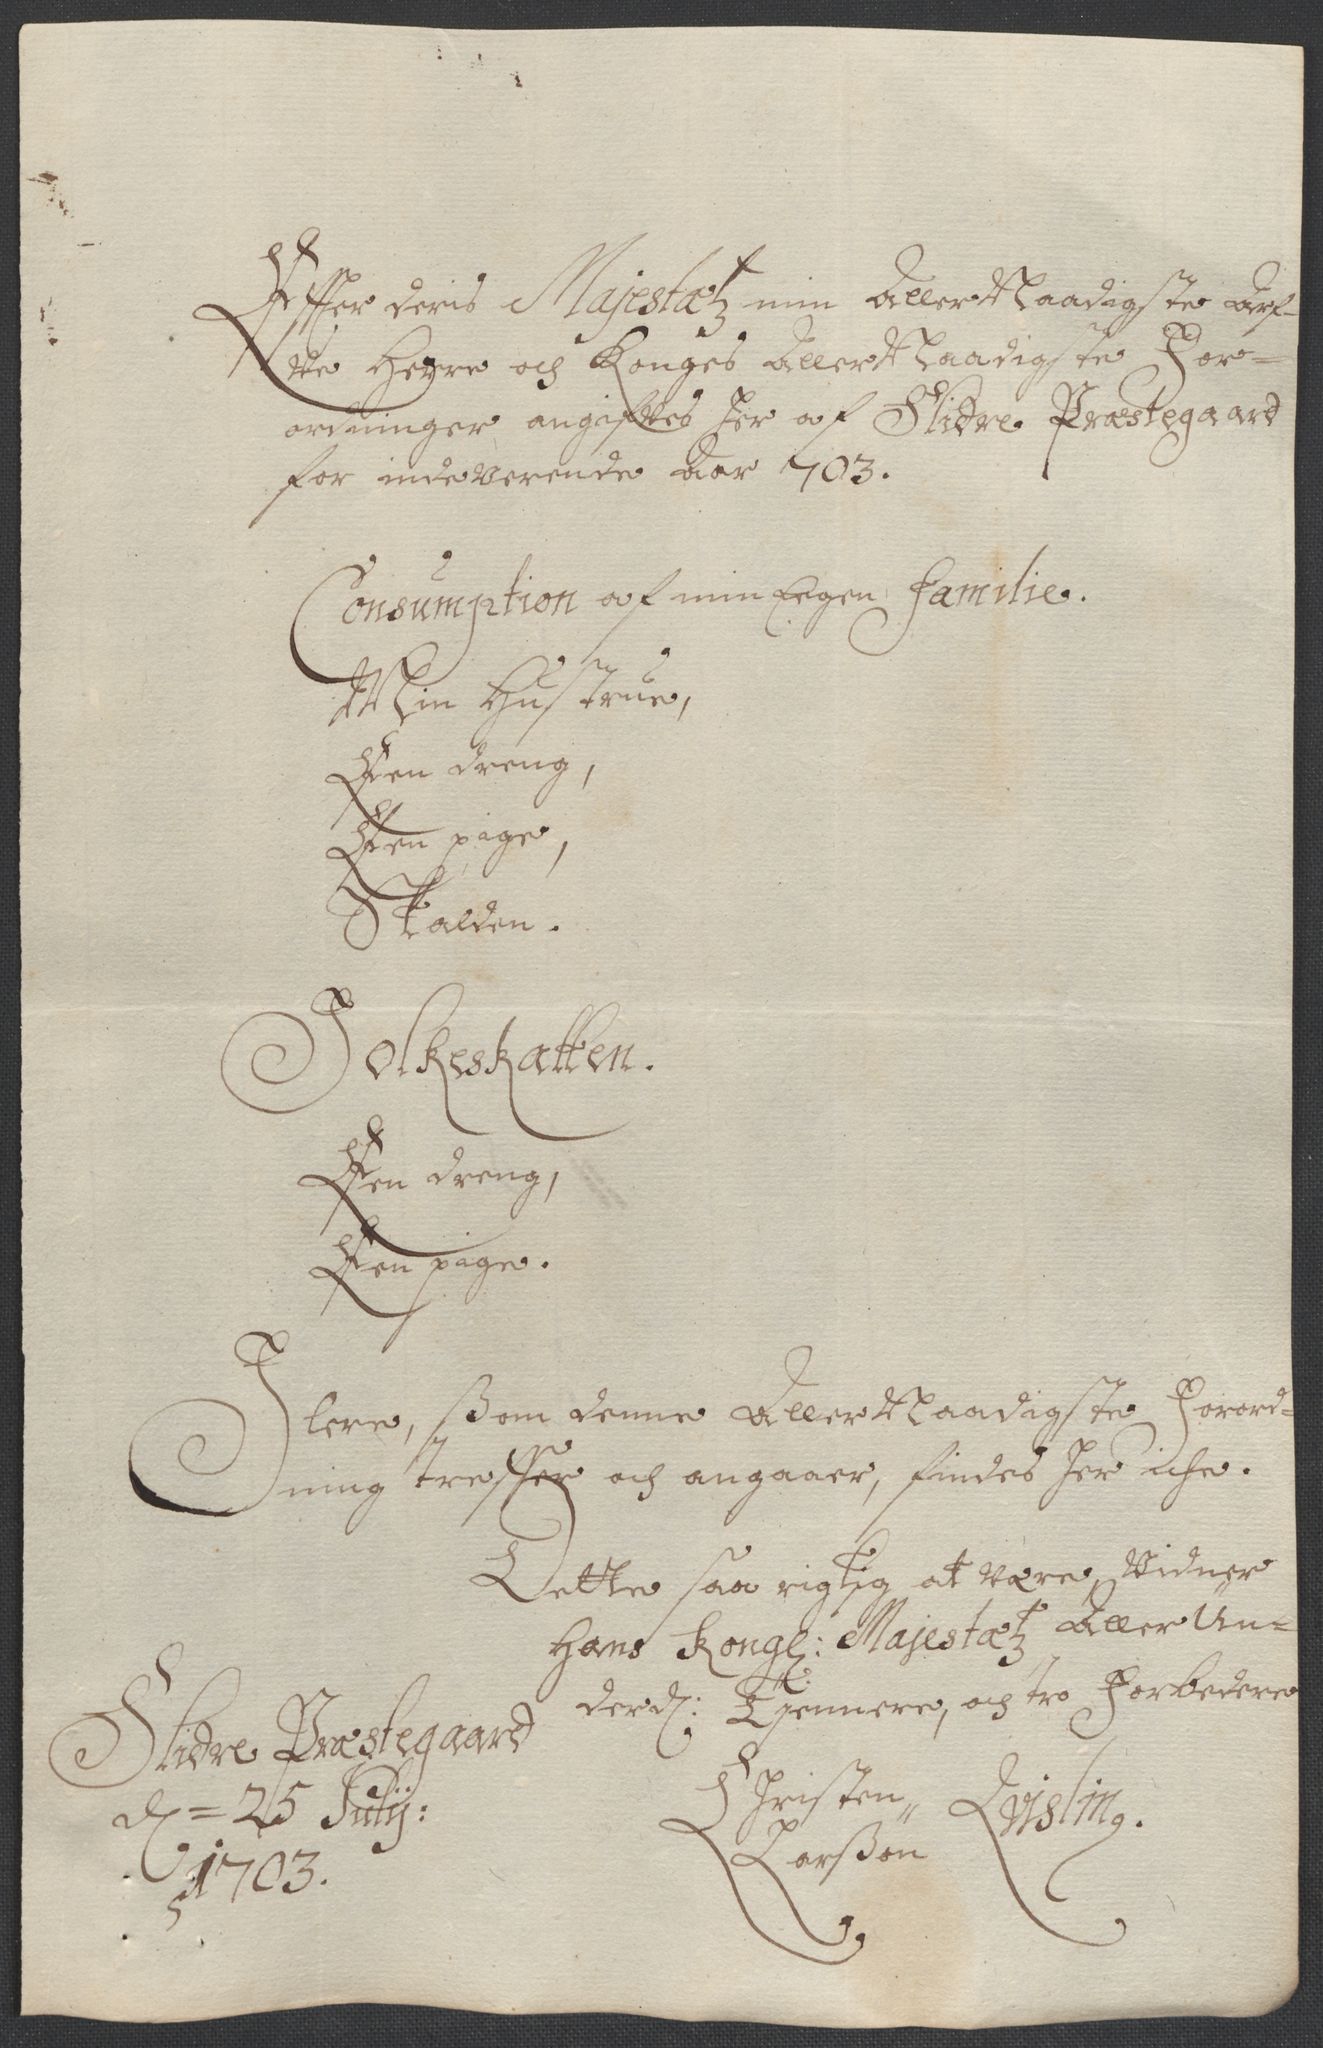 Effter deris Majestætz min Aller Naadigste Arf-
ve Herre och Konges Aller Naadigste For-
ordninger angifves her af Slidre Præstegaard
for indeverende Aar 703.
Consumption af min Eegen familie.
Min Hustrue,
Een dreng,
Een pige,
Skalden.
Folkeskatten.
Een dreng,
Een pige.
Flere, ßom denne Aller Naadigste Forord-
ning treffer och angaaer, findes her iche.
Dette saa rigtig at være, Vidner
Hans Kongl: Majestætz Aller Un-
derd: Tjennere, och tro Forbedere
Slidre Præstegaard
d = 25 Julij:
1703.
Christen
Larßøn